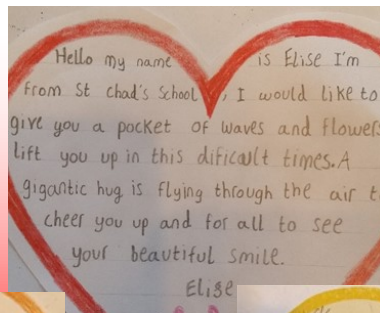 Hello my name is Elise I'm
from St chad's School, I would like to
give you a pocket of waves and flowers
lift you up in this dificault times. A
gigantic hug is flying through the air
cheer you up and for all to see
your beautiful smile.
Elise